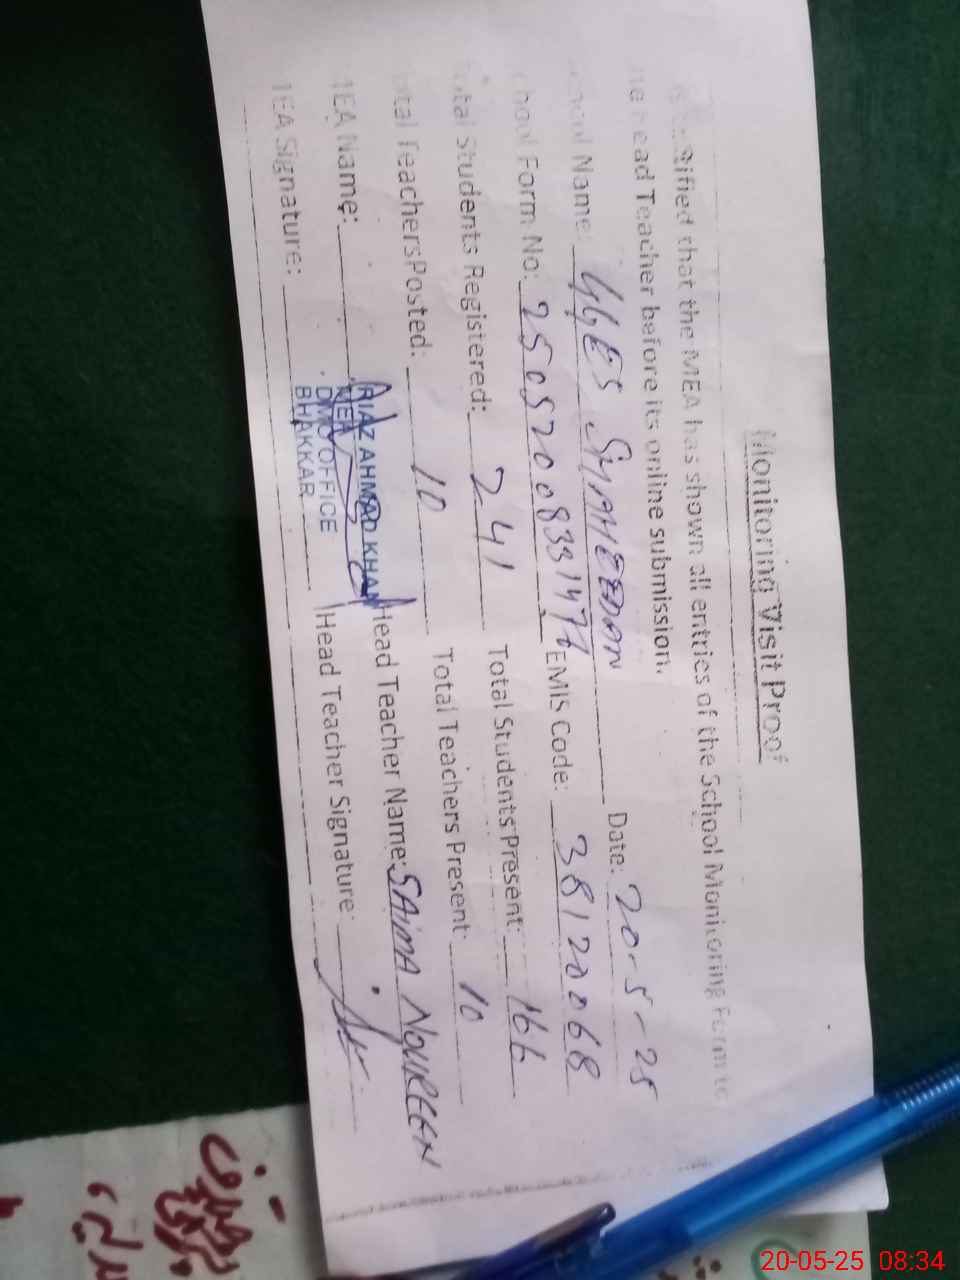 Monitoring Visit Proof
that the MEA has shown all entries of the School Monitoring Form to
Head Teacher before its online submission.
Name: GGES SHAHEEDAN Date: 20-5-25
School Form No: EMIS Code: 38120068
Total Students Registered: 241 Total Students Present: 166
Total TeachersPosted: 10 Total Teachers Present: 10
MEA Name: Head Teacher Name: SAIMA NOUREEN
RIAZ AHMAD KHAN
MEA
DMO OFFICE
BHAKKAR
MEA Signature: Head Teacher Signature:
20-05-25 08:34